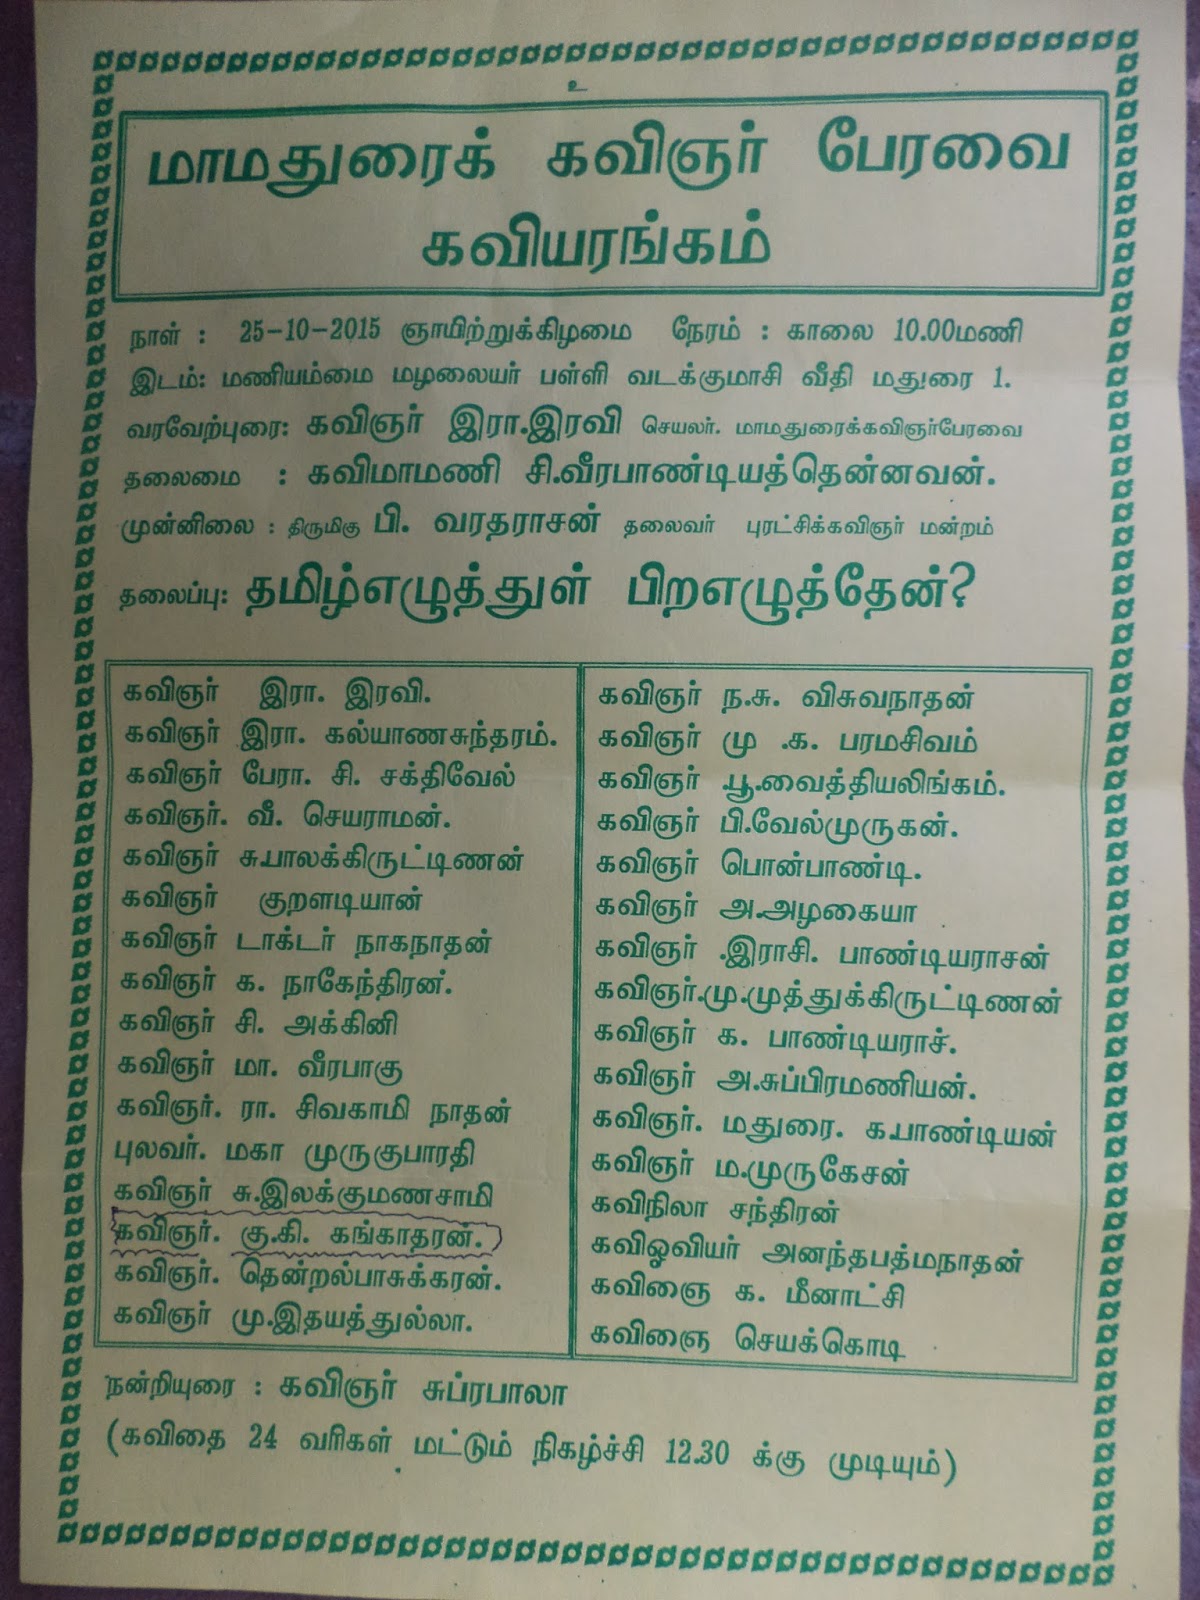 உ
மாமதுரைக் கவிஞர் பேரவை
கவியரங்கம்
நாள் : 25-10-2015 ஞாயிற்றுக்கிழமை நேரம் : காலை 10.00மணி
இடம்: மணியம்மை மழலையர் பள்ளி வடக்குமாசி வீதி மதுரை 1.
வரவேற்புரை: கவிஞர் இரா.இரவி செயலர். மாமதுரைக்கவிஞர்பேரவை
தலைமை : கவிமாமணி சி.வீரபாண்டியத்தென்னவன்.
முன்னிலை : திருமிகு பி. வரதராசன் தலைவர் புரட்சிக்கவிஞர் மன்றம்
தலைப்பு: தமிழ்எழுத்துள் பிறஎழுத்தேன்?
கவிஞர் இரா. இரவி.
கவிஞர் இரா. கல்யாணசுந்தரம்.
கவிஞர் பேரா. சி. சக்திவேல்
கவிஞர். வீ. செயராமன்.
கவிஞர் சு.பாலக்கிருட்டிணன்
கவிஞர் குறளடியான்
கவிஞர் டாக்டர் நாகநாதன்
கவிஞர் க. நாகேந்திரன்.
கவிஞர் சி. அக்கினி
கவிஞர் மா. வீரபாகு
கவிஞர். ரா. சிவகாமி நாதன்
புலவர். மகா முருகுபாரதி
கவிஞர் சு.இலக்குமணசாமி
கவிஞர். கு.கி. கங்காதரன்.
கவிஞர். தென்றல்பாசுக்கரன்.
கவிஞர் மு.இதயத்துல்லா.
கவிஞர் ந.சு. விசுவநாதன்
கவிஞர் மு .க. பரமசிவம்
கவிஞர் .பூ.வைத்தியலிங்கம்.
கவிஞர் பி.வேல்முருகன்.
கவிஞர் பொன்பாண்டி.
கவிஞர் அ.அழகையா
கவிஞர் .இராசி. பாண்டியராசன்
கவிஞர்.மு.முத்துக்கிருட்டிணன்
கவிஞர் க. பாண்டியராச்.
கவிஞர் அ.சுப்பிரமணியன்.
கவிஞர். மதுரை. க.பாண்டியன்
கவிஞர் ம.முருகேசன்
கவிநிலா சந்திரன்
கவிஓவியர் அனந்தபத்மநாதன்
கவிஞை க. மீனாட்சி
கவிஞை செயக்கொடி
நன்றியுரை : கவிஞர் சுப்ரபாலா
(கவிதை 24 வரிகள் மட்டும் நிகழ்ச்சி 12.30 க்கு முடியும்)